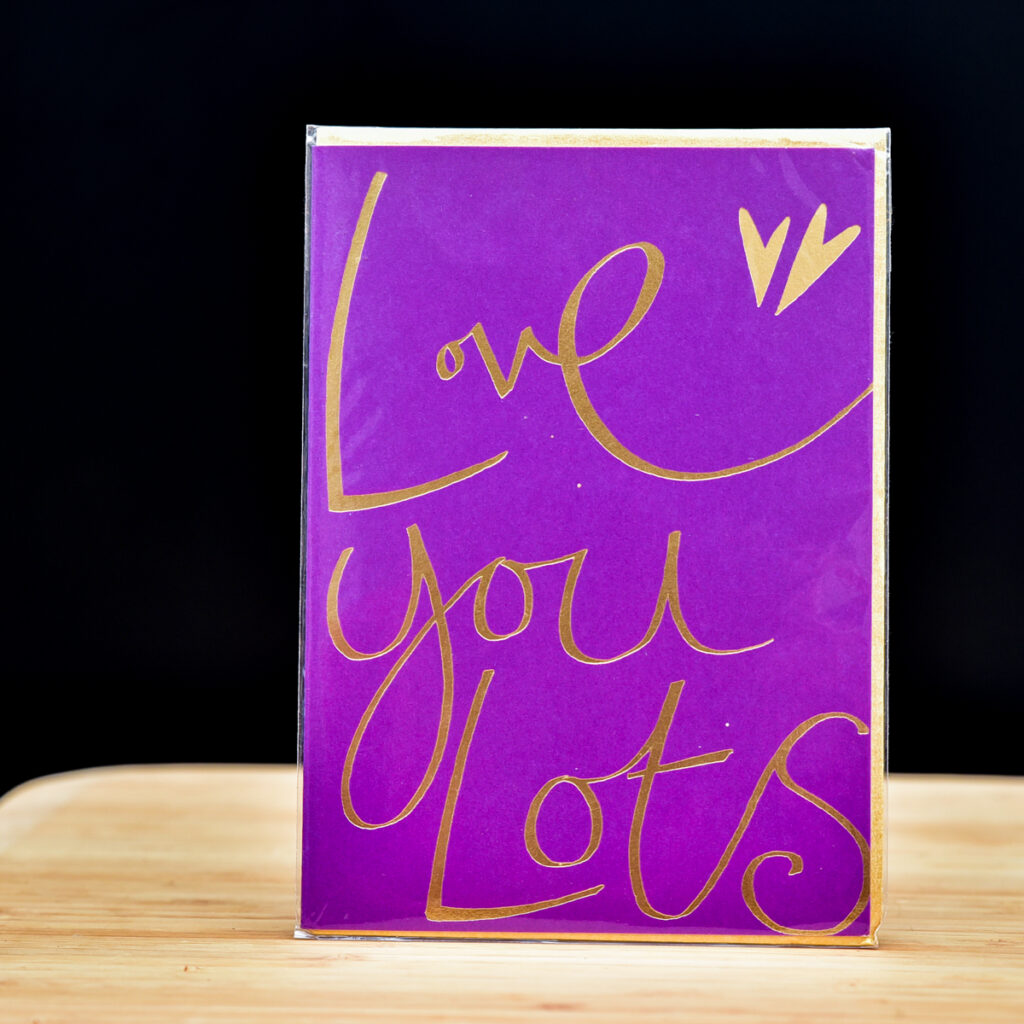 Love
you
Lots